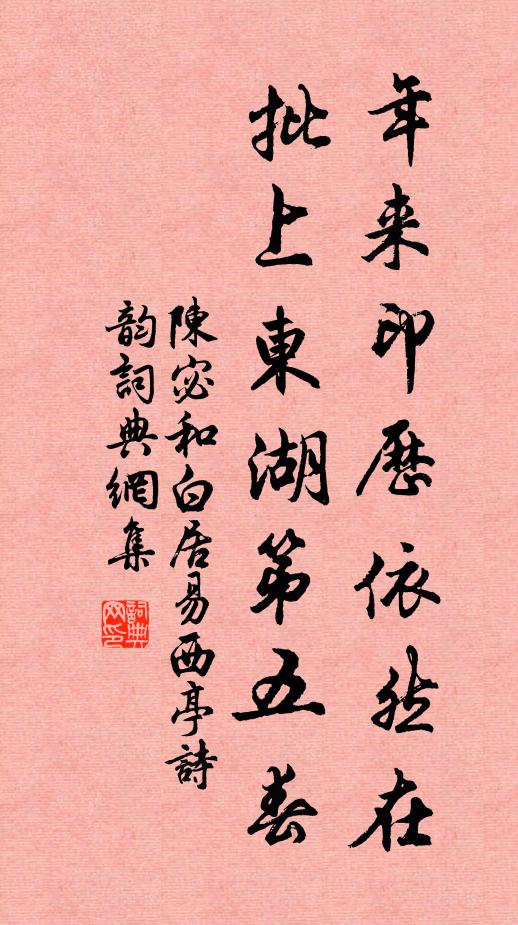 年来印歷依然在
批上東湖第五春
陳宓和白居易西亭詩
韵詞典網集
詞典网印